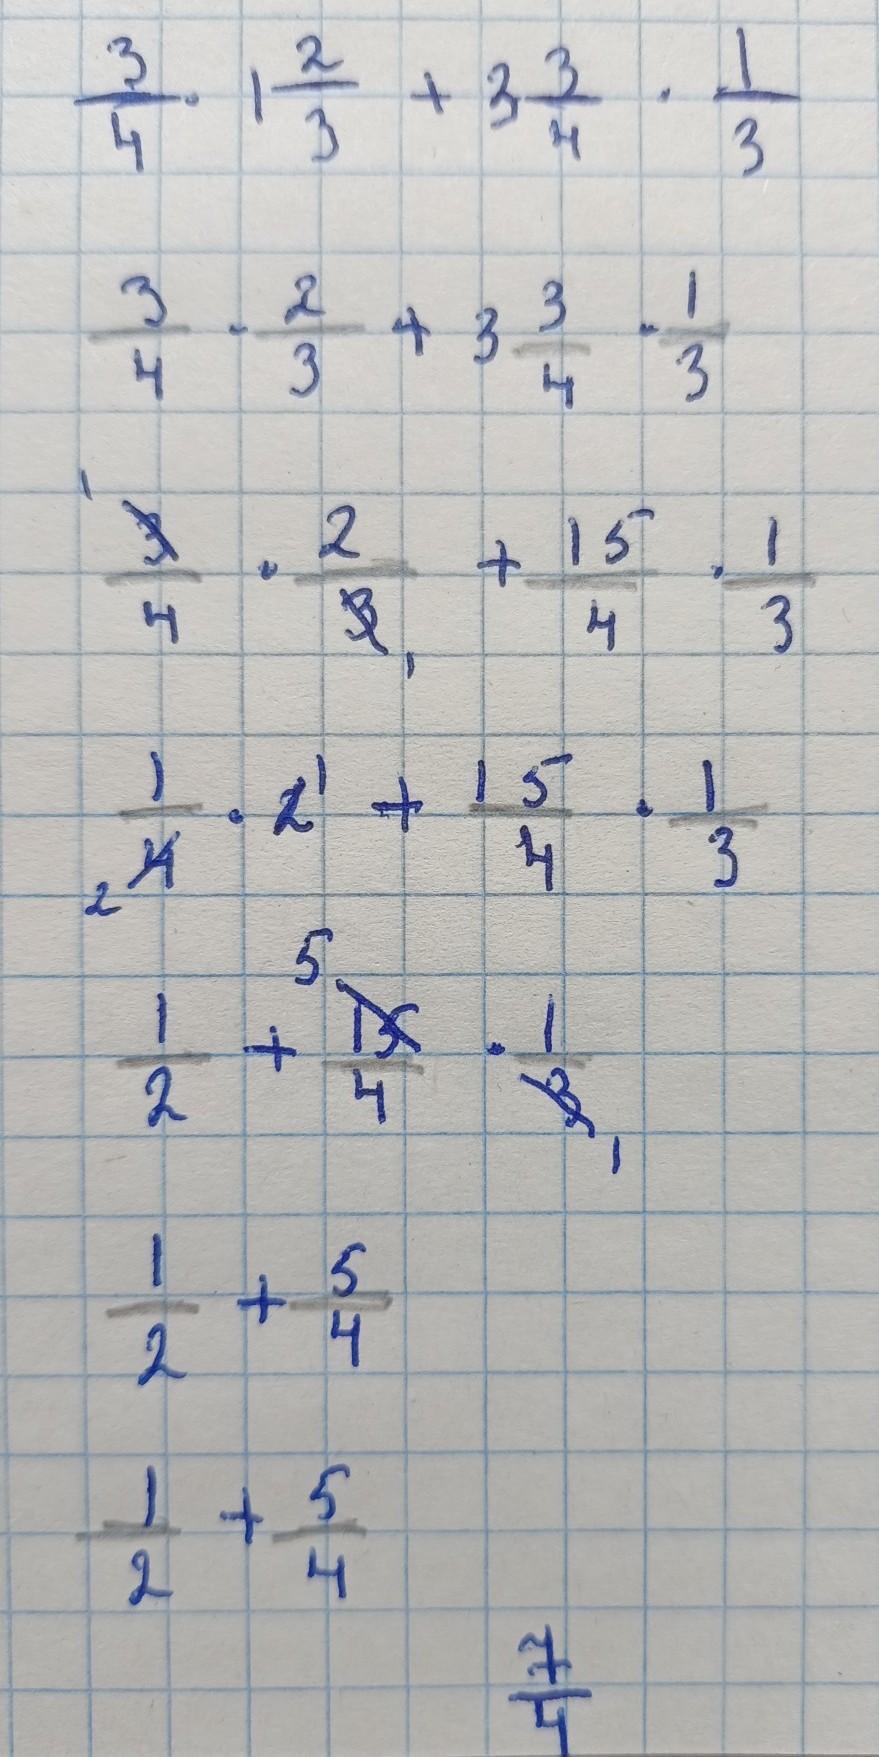 3/4 · 1 2/3 + 3 3/4 · 1/3
3/4 · 2/3 + 3 3/4 · 1/3
1 3/4 · 2/3 1 + 15/4 · 1/3
1/4 2 · 2 1 + 15/4 · 1/3
1/2 + 5 15/4 · 1/3 1
1/2 + 5/4
1/2 + 5/4
7/4